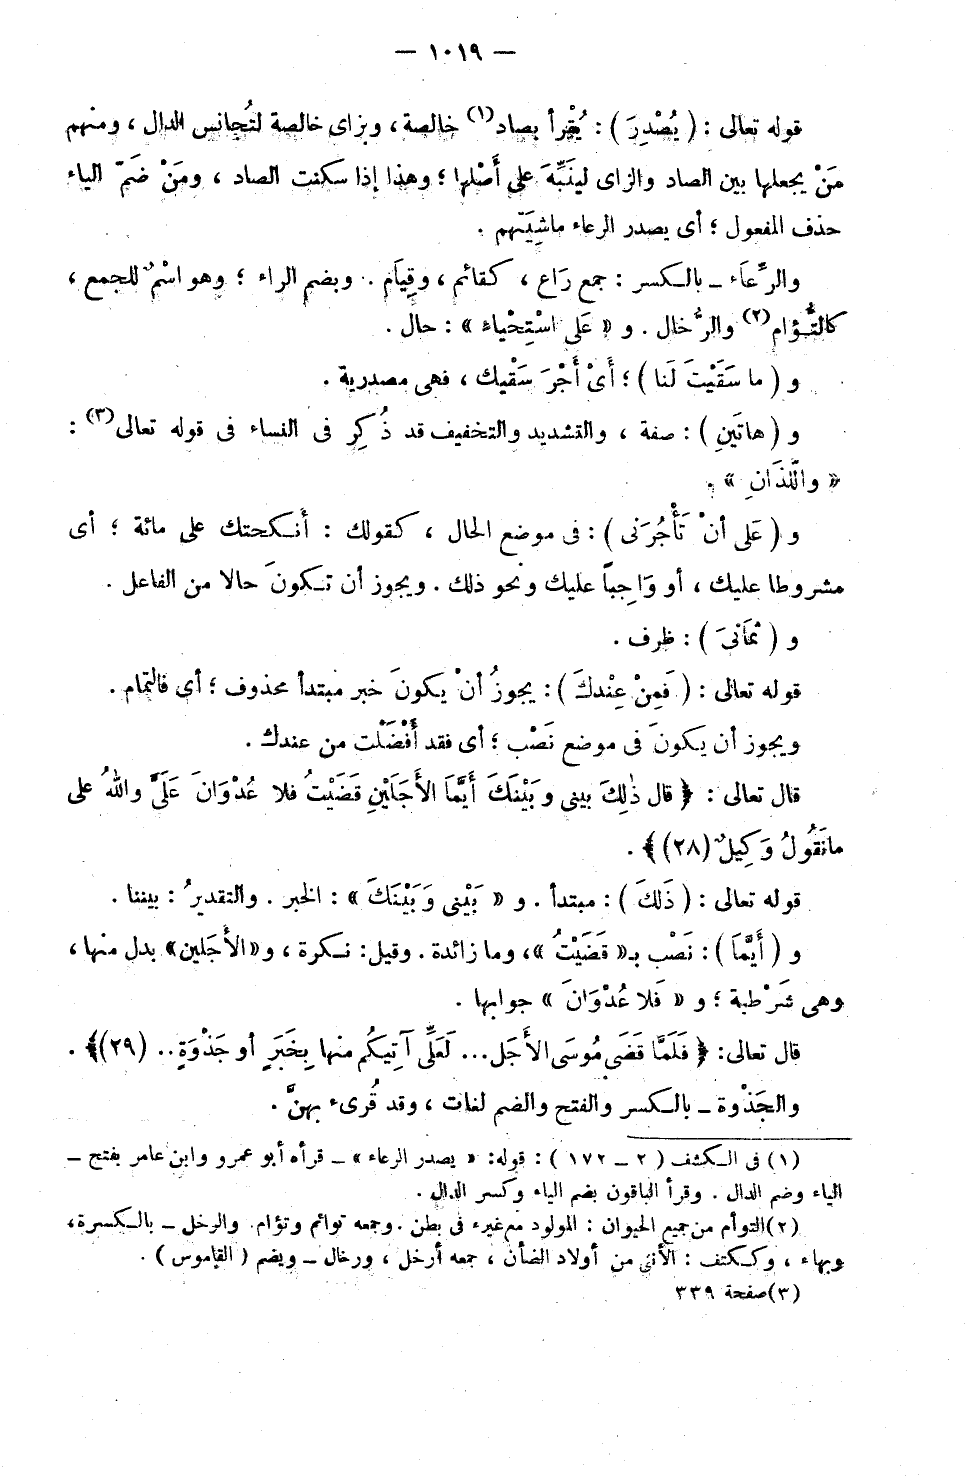 — ١٠١٩ —
قوله تعالى : ( يُصْدِرَ ) : يُقْرأ بصاد(١) خالصة ، وبزاى خالصة لتُجانس الدال ، ومنهم
مَنْ يجعلها بين الصاد والزاى لينَبِّهَ على أَصْلها ؛ وهذا إذا سكنت الصاد ، ومَنْ ضَمّ الياء
حذف المفعول ؛ أى يصدر الرعاء ماشِيَتهم .
والرِّعَاء ــ بالكسر : جمع رَاع ، كقائم ، وقِيَام . وبضم الراء ؛ وهو اسْمٌ للجمع ،
كالتُّؤام(٢) والرُّخال . و « عَلى اسْتِحْياء » : حال .
و ( ما سَقَيْتَ لَنا ) ؛ أَىْ أَجْرَ سَقْيك ، فهى مصدرية .
و ( هاتَينِ ) : صفة ، والتشديد والتخفيف قد ذُكِر فى النساء فى قوله تعالى(٣) :
« واللَّذَانِ » .
و ( عَلى أنْ تَأْجُرَنى ) : فى موضع الحال ، كقولك : أَنكحتك على مائة ؛ أى
مشروطا عليك ، أو وَاجِباً عليك ونحو ذلك . ويجوز أن تكونَ حالا من الفاعل .
و ( ثمَانىَ ) : ظرف .
قوله تعالى : ( فَمِنْ عِنْدكَ ) : يجوزُ أنْ يكونَ خبر مبتدأ محذوف ؛ أى فالتمام .
ويجوز أن يكونَ فى موضع نَصْب ؛ أى فقد أَفْضَلْت من عندك .
قال تعالى : ﴿ قال ذٰلِكَ بينى وبَيْنَكَ أَيَّمَا الأَجَلَيْنِ قَضَيْتُ فلا عُدْوَانَ عَلَىَّ واللهُ على
مانَقُولُ وَكِيلٌ (٢٨) ﴾ .
قوله تعالى : ( ذَلكَ ) : مبتدأ . و « بَيْنى وَبَيْنَكَ » : الخبر . والتقديرُ : بيننا .
و ( أَيَّمَا ) : نَصْب بـ« قَضَيْتُ »، وما زائدة . وقيل: نكرة ، و«الأَجَلين» بدل منها ،
وهى شَرْطية ؛ و « فَلا عُدْوَانَ » جوابها .
قال تعالى: ﴿ فَلَمَّا قَضَى مُوسَى الأَجَل... لَعَلِّى آتِيكُم منها بِخَبَرٍ أو جَذْوَةٍ .. (٢٩)﴾ .
والجَذْوة ــ بالكسر والفتح والضم لغات ، وقد قُرىء بهنَّ .
(١) فى الكشف ( ٢ ــ ١٧٢ ) : قوله: « يصدر الرعاء » ــ قرأه أبو عمرو وابن عامر بفتح ــ
الياء وضم الدال . وقرأ الباقون بضم الياء وكسر الدال .
(٢)التوأم من جميع الحيوان : المولود مع غيره فى بطن .وجمعه توائم وتؤام. والرخل ــ بالكسرة،
وبهاء ، وككتف : الأنثى من أولاد الضأن ، جمعه أرخل ، ورخال ــ ويضم ( القاموس ) .
(٣)صفحة ٣٣٩